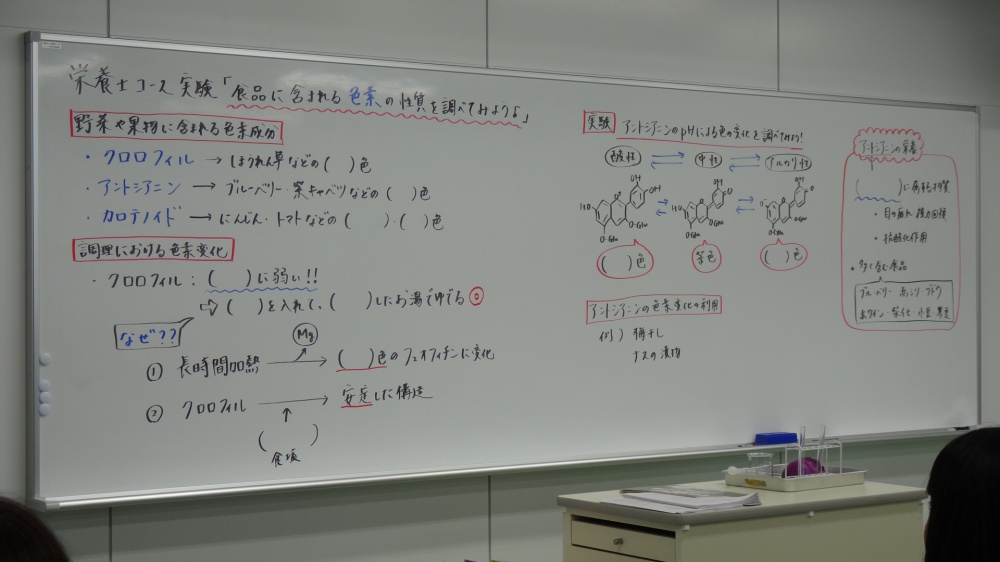 栄養士コース 実験「食品に含まれる色素の性質を調べてみよう♩」
野菜や果物に含まれる色素成分
・クロロフィル → ほうれん草などの( )色
・アントシアニン → ブルーベリー・紫キャベツなどの( )色
・カロテノイド → にんじん・トマトなどの( )・( )色
調理における色素変化
・クロロフィル：( )に弱い!!
⇨( )を入れて、( )したお湯で茹でる◎
なぜ??
① 長時間加熱 → ( )色のフェオフィチンに変化
Mg
② クロロフィル → 安定した構造
( )
食塩
実験 アントシアニンのpHによる色の変化を調べてみよう!
酸性 ⇄ 中性 ⇄ アルカリ性
OH OH OH
HO O-Glu O-Glu
HO O-Glu O-Glu
O-Glu O-Glu
( )色 紫色 ( )色
アントシアニンの色素変化の利用
例) 梅干し
ナスの漬物
アントシアニンの栄養
( )に有効な物質
・目の疲れ・視力回復
・抗酸化作用
・多く含む食品
ブルーベリー 黒ゴマ ブドウ
赤ワイン 小豆 黒豆